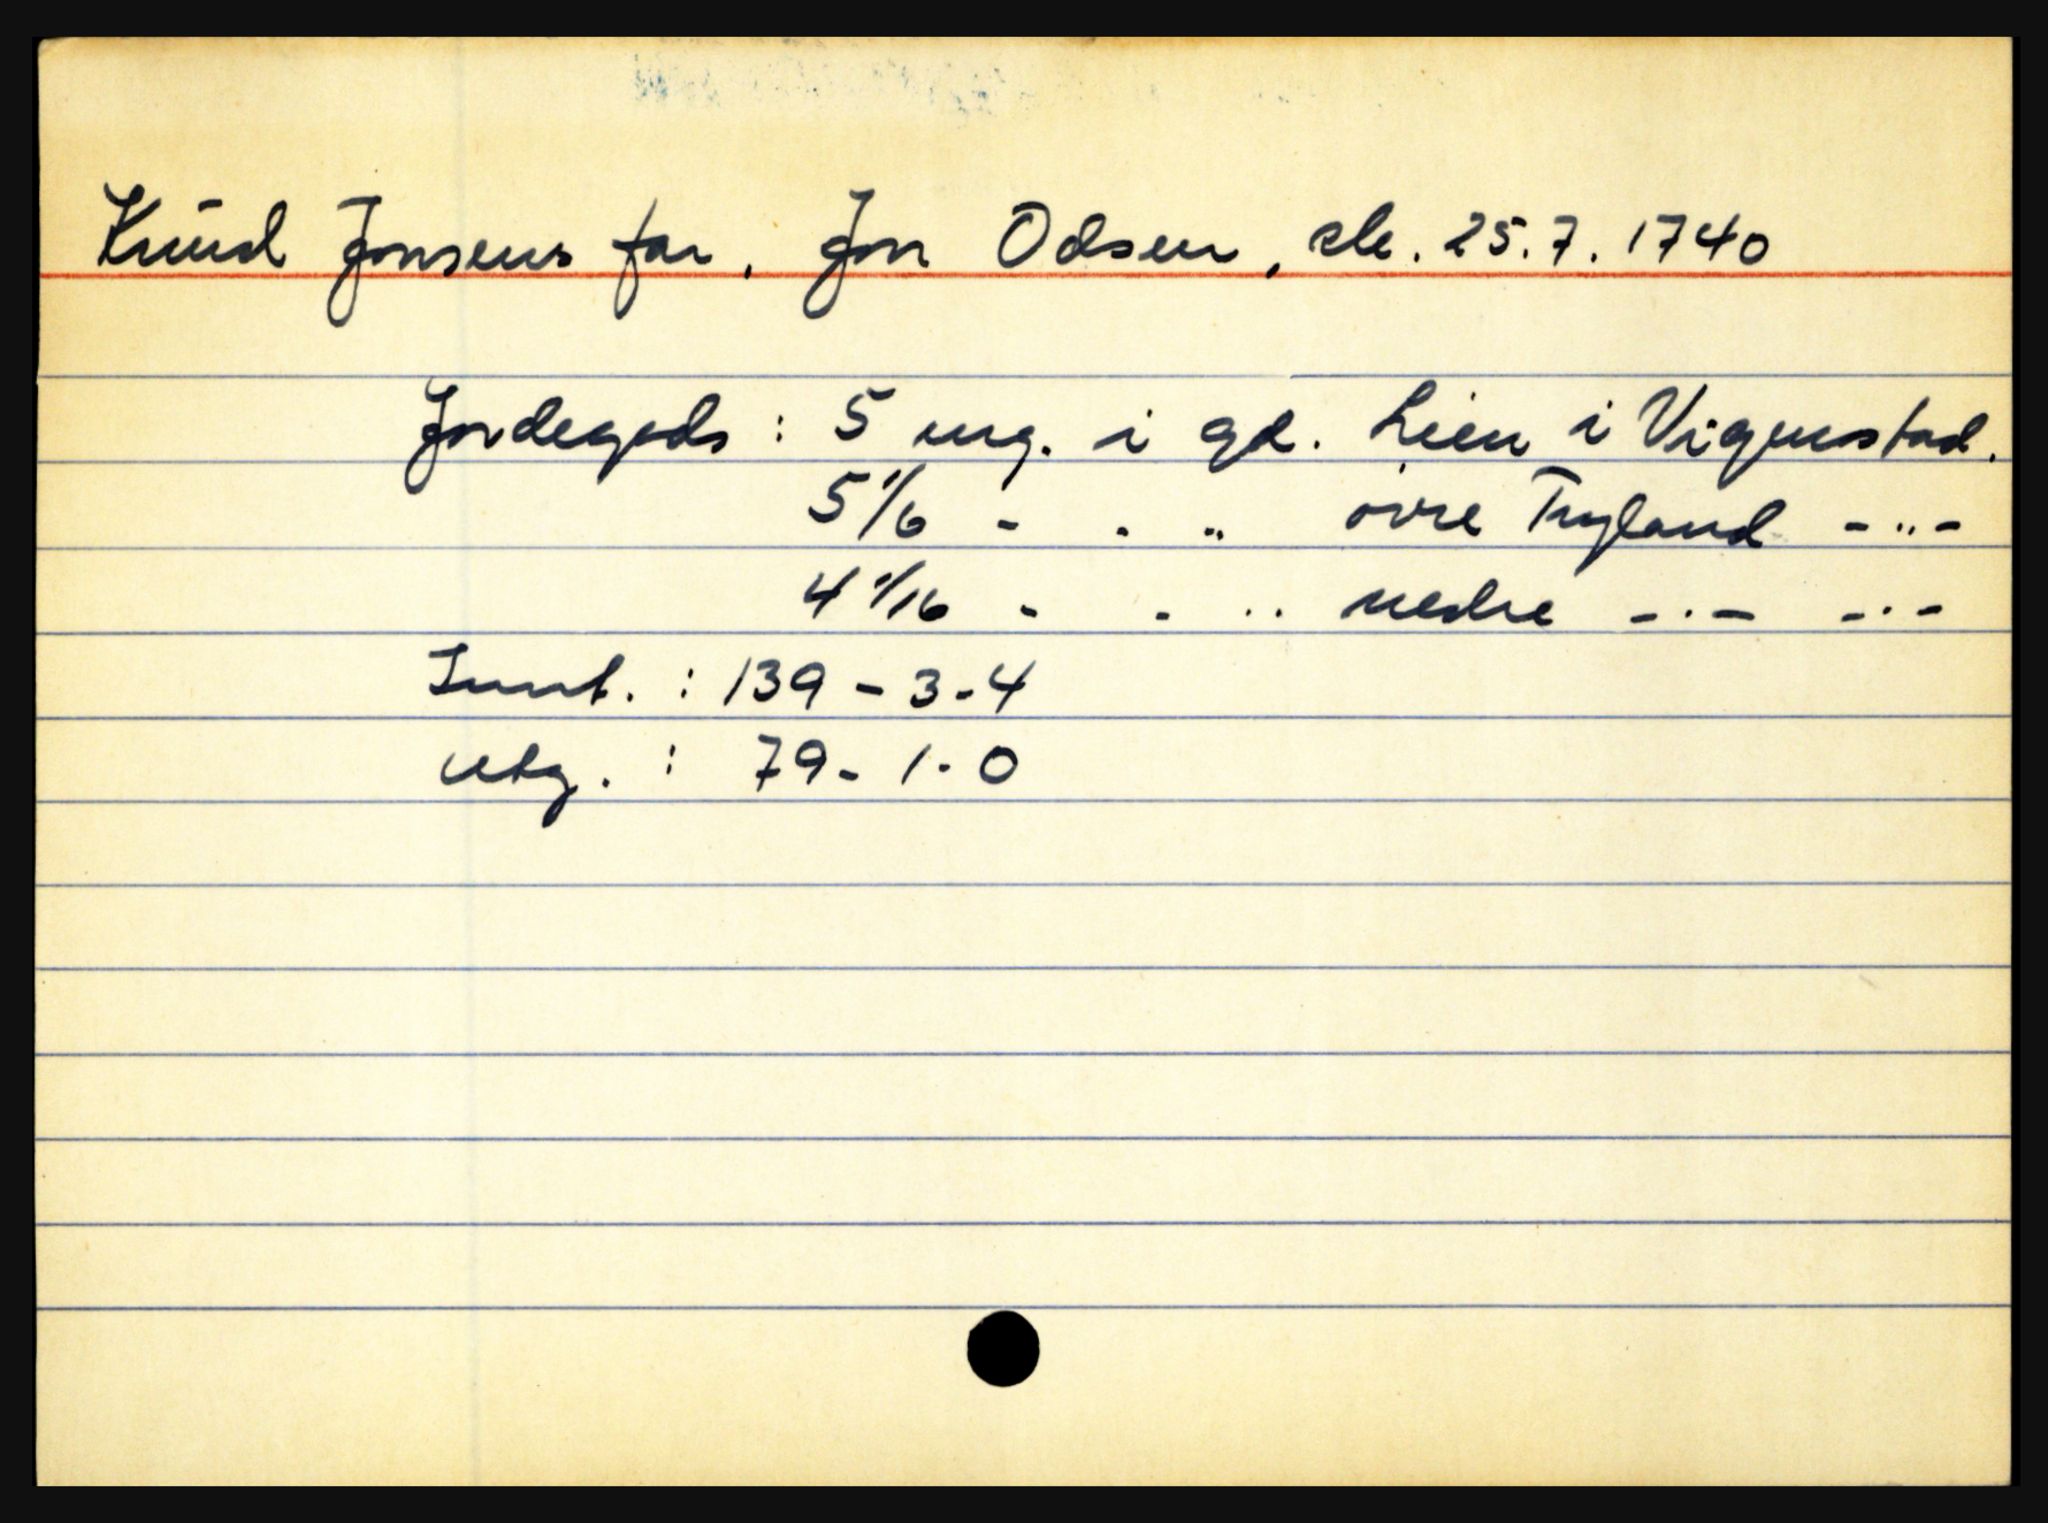 Knud Jonsens far, Jon Odsen, sk. 25.7.1740
Jordegods : 5 mg. i gd. Lien i Vigmostad.
5 1/6 - . .. övre Tryland - .. -
4 1/16 - - .. nedre - . - - . -
Innt. : 139 - 3 - 4
Utg. : 79 - 1 - 0